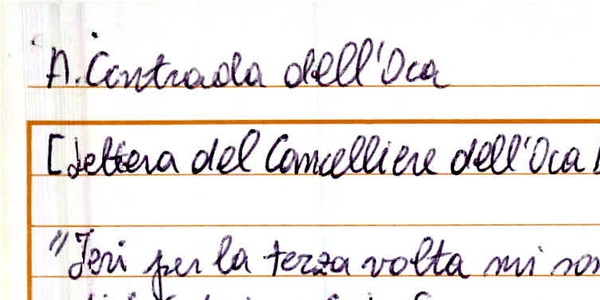 A. Contrada dell'Oca
[Lettera del Cancelliere dell'Oca
"Ieri per la terza volta mi son